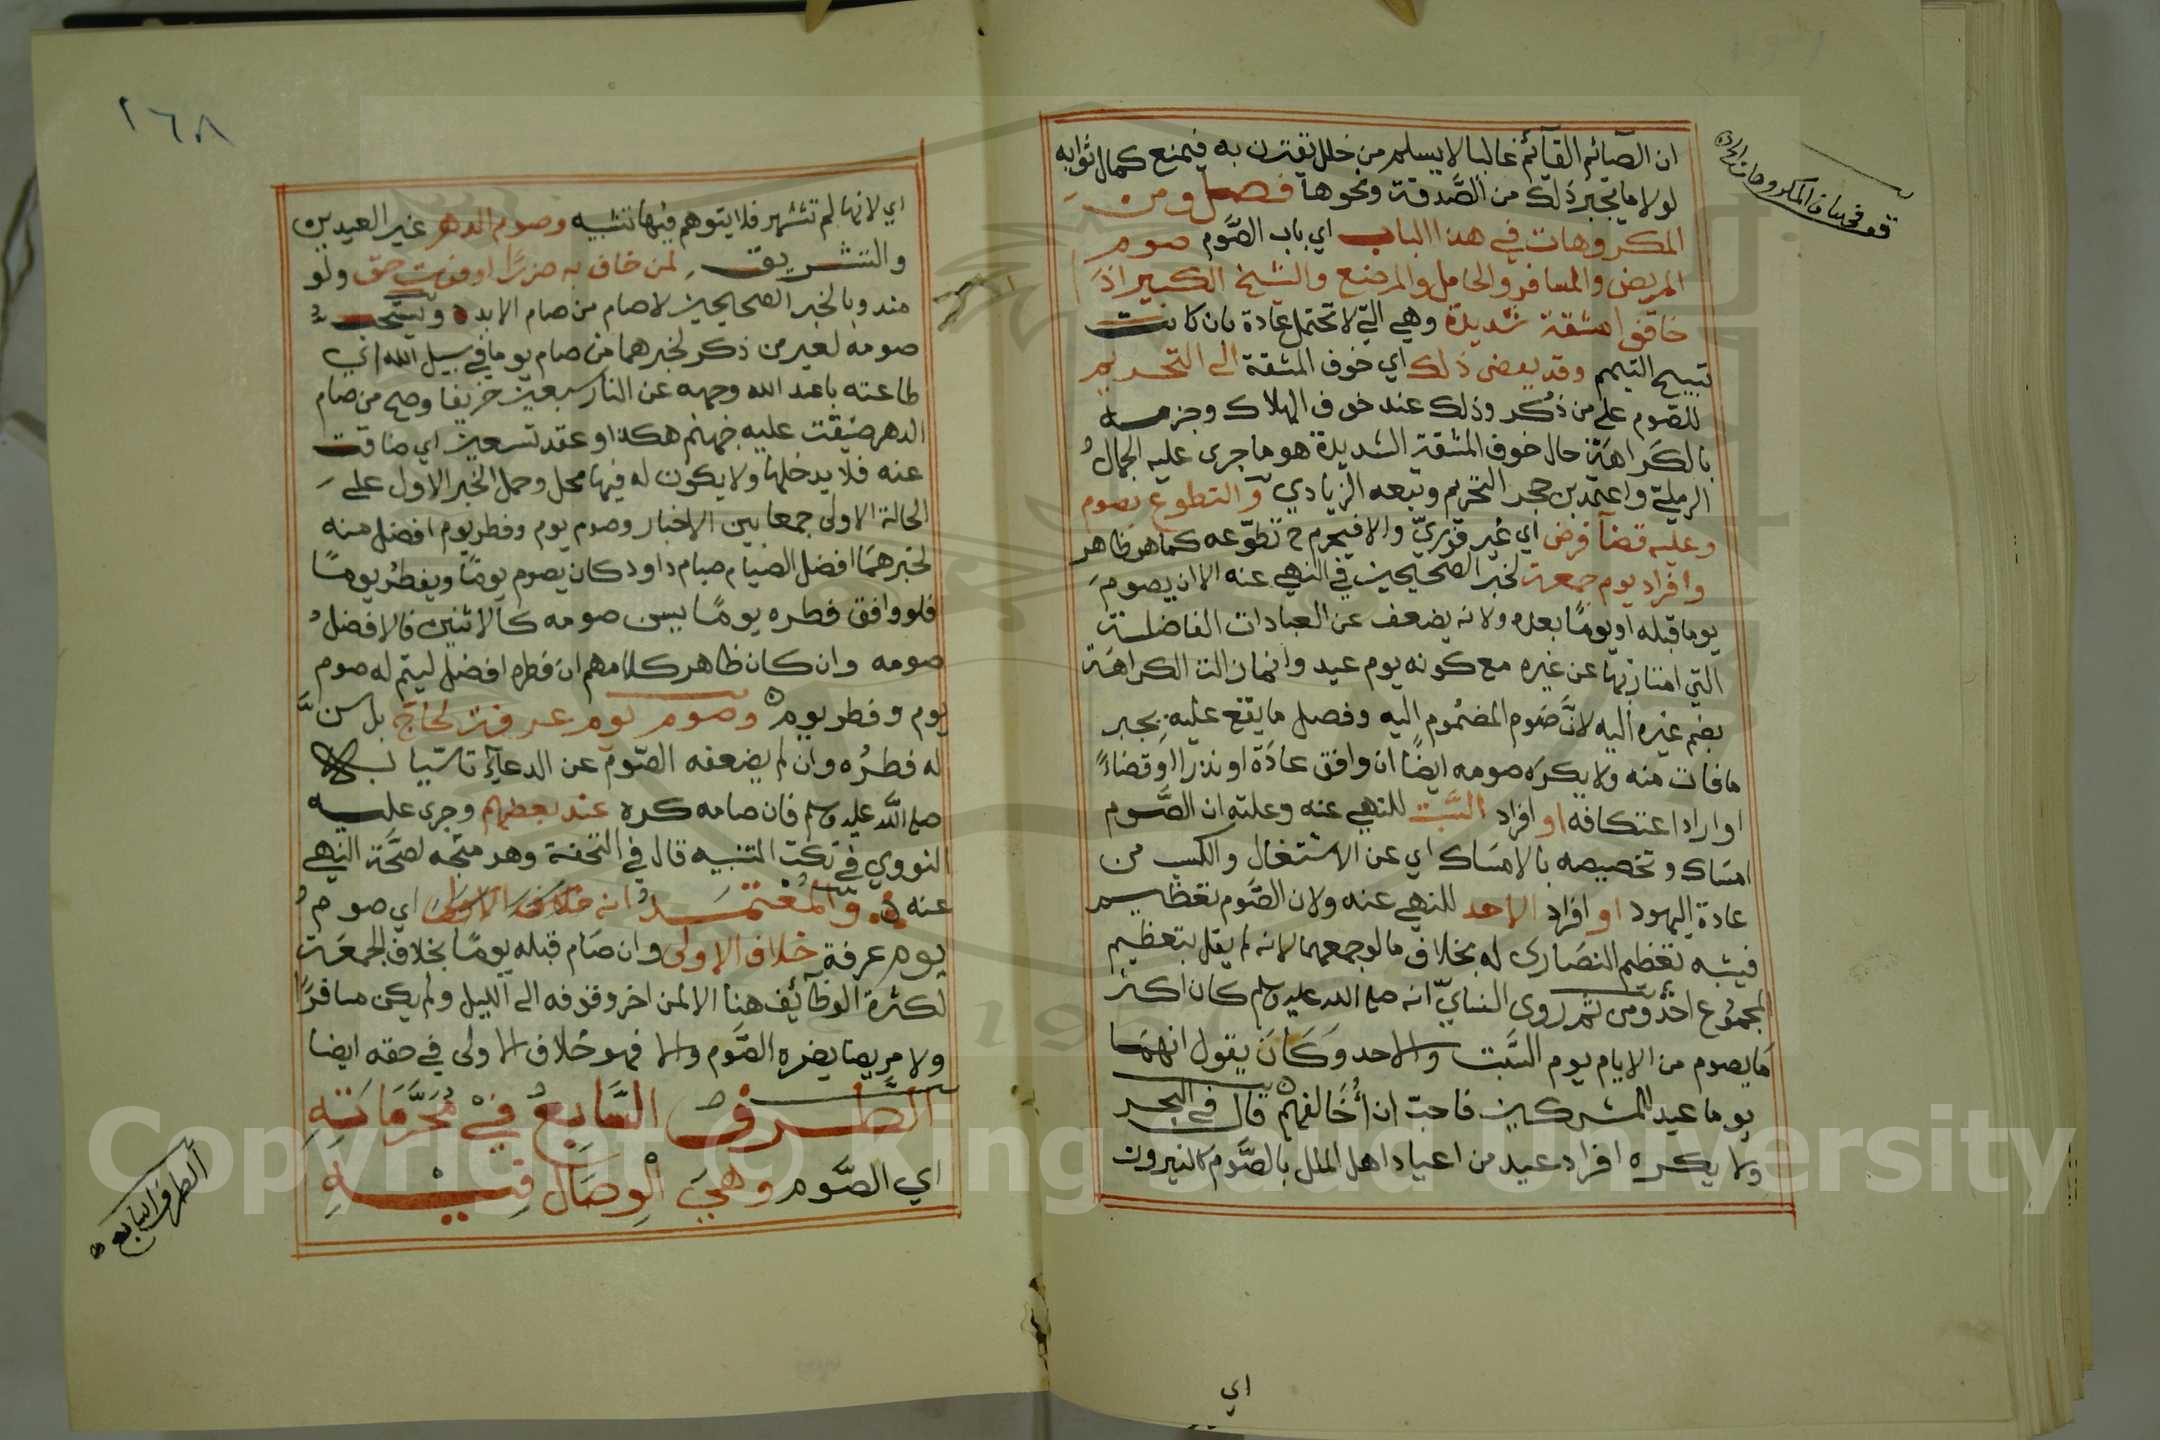 ان الصآئم القآئم غالبا لا يسلم من خلل يقترن به فيمنع كمال ثوابه
لولا ما يجبر ذلك من الصَّدقة ونحوها فصل ومن
المكروهات في هذا الباب اي باب الصَّوم صوم
المريض والمسافر والحامل والمرضع والشيخ الكبير اذَ
خافوا مشقة شديدة وهي التي لا تحتمل عادة بان كانت
تبيح التيمم وقد يفضي ذلك اي خوف المشقة الى التحريم
للصَّوم على من ذُكر وذلك عند خوف الهلاك وجزمه
بالكَراهَة حال خوف المشقة الشديدة هو ما جرى عليه الجمالُ
الرمليّ واعتمد بن حجر التحريم وتبعه الزيادي والتطوع بصوم
وعليه قضآ فرض اي غير فوريّ والا فيحرم ح تطوّعه كما هو ظاهر
وافراد يوم جمعة لخبر الصحيحين في النهي عنه الا ان يصومَ
يوما قبله او يومًا بعده ولانه يضعف عن العبادات الفاضلة
التي امتاز بها عن غيره مع كونه يوم عيد وانما زالت الكراهَة
بضم غيره اليه لانَّ صَوم المضمُوم اليه وفضل ما يقع عليه يجبر
ما فات منه ولا يكرَه صومه ايضًا ان وافق عادَة او نذرا او قضاءً
او اراد اعتكافه او افراد السَّبت للنهي عنه وعلته ان الصَّوم
امسَاك وتخصيصه بالامسَاك اي عن الاشتغال والكسب من
عادة اليهود او افراد الاحد للنهي عنه ولان الصَّوم تعظيم
فيشبه تعظيم النصَارى له بخلاف ما لو جمعهما لانه لم يقل بتعظيم
المجموُع احَدٌ ومن ثم روى النسايّ انه صلى الله عليه وسلم كان اكثر
مَا يصوم من الايام يوم السَّبت والاحد وَكَانَ يقول انهمَا
يوما عيد المشركين فاحبّ ان أُخَالفهم ه قال في البحر
ولا يكره افراد عيد من اعياد اهل الملل بالصَّوم كالنيروز
اي
اي لانها لم تشتهر فلا يتوهم فيها تشبيه وصوم الدهر غير العيدين
والتشريق لمن خاف به ضررًا او فوت حق ولو
مندوبا لخبر الصحيحين لا صام من صام الابد ه ويستحب
صومه لغير من ذكر لخبرهما من صام يوما في سبيل الله اي
طاعته باعد الله وجهه عن النار سبعين خريفا وصح من صام
الدهر ضيّقت عليه جهنم هكذا وعقد تسعين اي ضاقت
عنه فلا يدخلها ولا يكون له فيها محل وحمل الخبر الاول على
الحالة الاولى جمعا بين الاخبار وصوم يوم وفطر يوم افضل منه
لخبرهمَا افضل الصيام صيام داود كان يصوم يومًا ويفطرُ يومًا
فلو وافق فطره يومًا يسن صومه كالاثنين فالافضلُ
صومه وان كان ظاهر كلامهم ان فطره افضل ليتم له صوم
يوم وفطر يوم ه وصوم يوم عرفة لحَاجّ بل سنَّ
له فطرُه وان لم يضعفه الصّوم عن الدعآء تاسّيا به
صلى اللَّه عليه وسلم فان صامه كره عند بعضهم وجرى عليه
النووي في نكت التنبيه قال في التحفة وهو متجه لصحَّة النهي
عنه ه وَالمُعْتمَدُ انه خلاف الاولى اي صومُ
يوم عرفة خلاف الاولى وان صَام قبله يومًا بخلاف الجمعَة
لكثرة الوظآئف هنا الا لمن اخر وقوفه الى الليل ولم يكن مسافرًا
ولا مريضا يضره الصَّوم والا فهو خلاف الاولى في حقه ايضا
الطَّرفُ السَّابعُ فيْ مُحَرَّمَاتِهِ
اي الصَّوم وهيَ الْوِصَال فِيْهِ
الطرف السابع ه
١٦٨